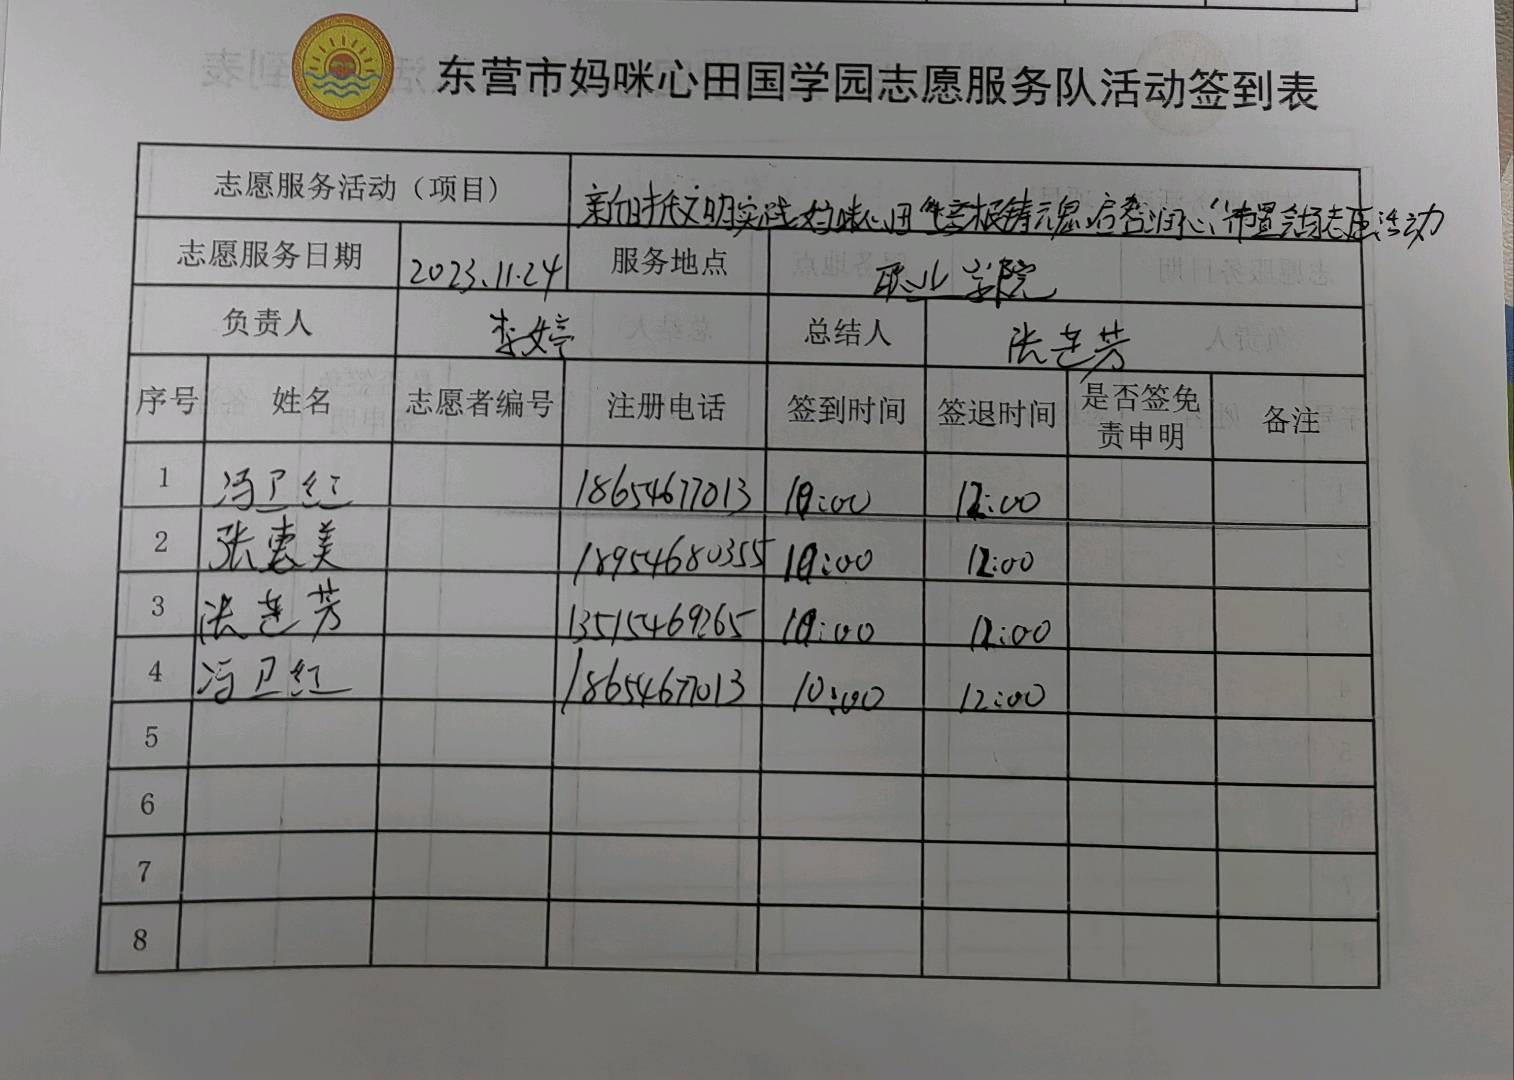 东营市妈咪心田国学园志愿服务队活动签到表
志愿服务活动（项目） 新时代文明实践妈咪心田 铸魂启智润心"布置会场志愿活动
志愿服务日期 2023.11.24 服务地点 职业学院
负责人 李婷 总结人 张芝芳
序号 姓名 志愿者编号 注册电话 签到时间 签退时间 是否签免责申明 备注
1 冯卫红 18654677013 10:00 12:00
2 张惠美 18954680355 10:00 12:00
3 张芝芳 13515469265 10:00 12:00
4 冯卫红 18654677013 10:00 12:00
5
6
7
8